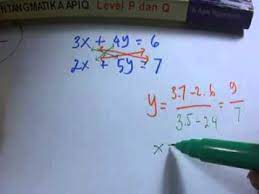 NTANGMATIKA APIQ Level P dan Q
3x + 4y = 6
2x + 5y = 7
y = 3.7 - 2.6 / 3.5 - 2.4 = 9 / 7
x